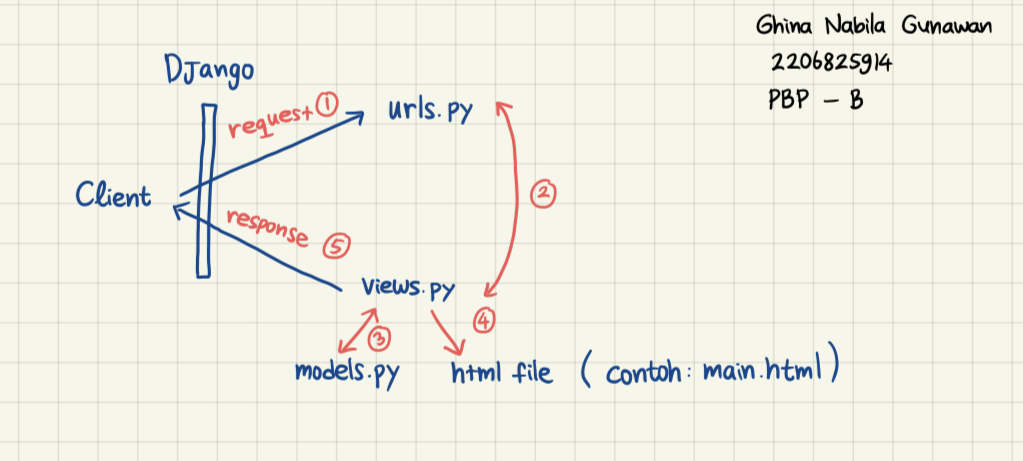 Ghina Nabila Gunawan
2206825914
PBP - B
Django
request ①
urls.py
Client
②
response ⑤
views.py
④
③
models.py
html file (contoh: main.html)